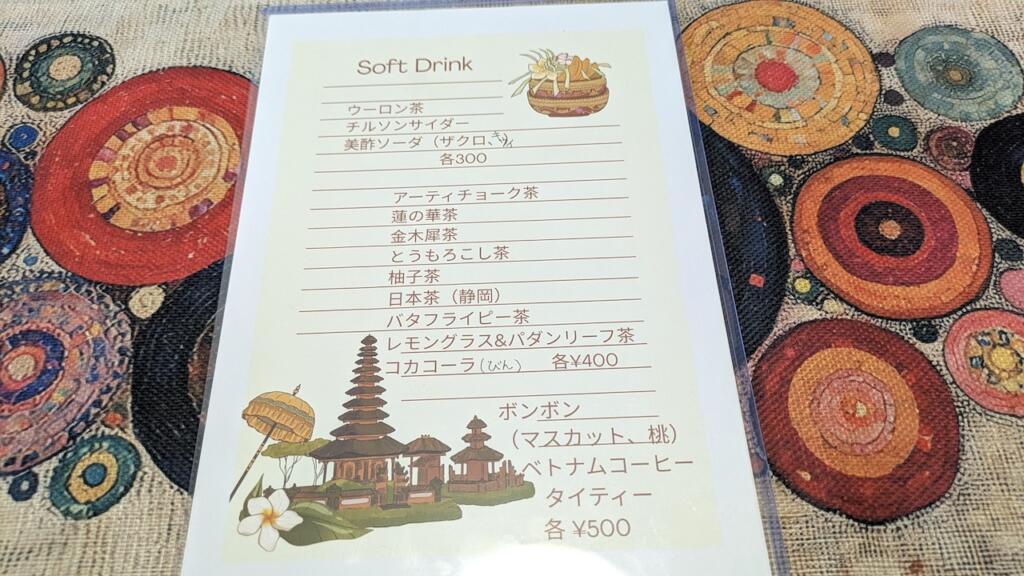 Soft Drink
ウーロン茶
チルソンサイダー
美酢ソーダ（ザクロ、
各300
アーティチョーク茶
蓮の華茶
金木犀茶
とうもろこし茶
柚子茶
日本茶（静岡）
バタフライピー茶
レモングラス&パダンリーフ茶
コカコーラ（びん） 各¥400
ボンボン
（マスカット、桃）
ベトナムコーヒー
タイティー
各 ¥500